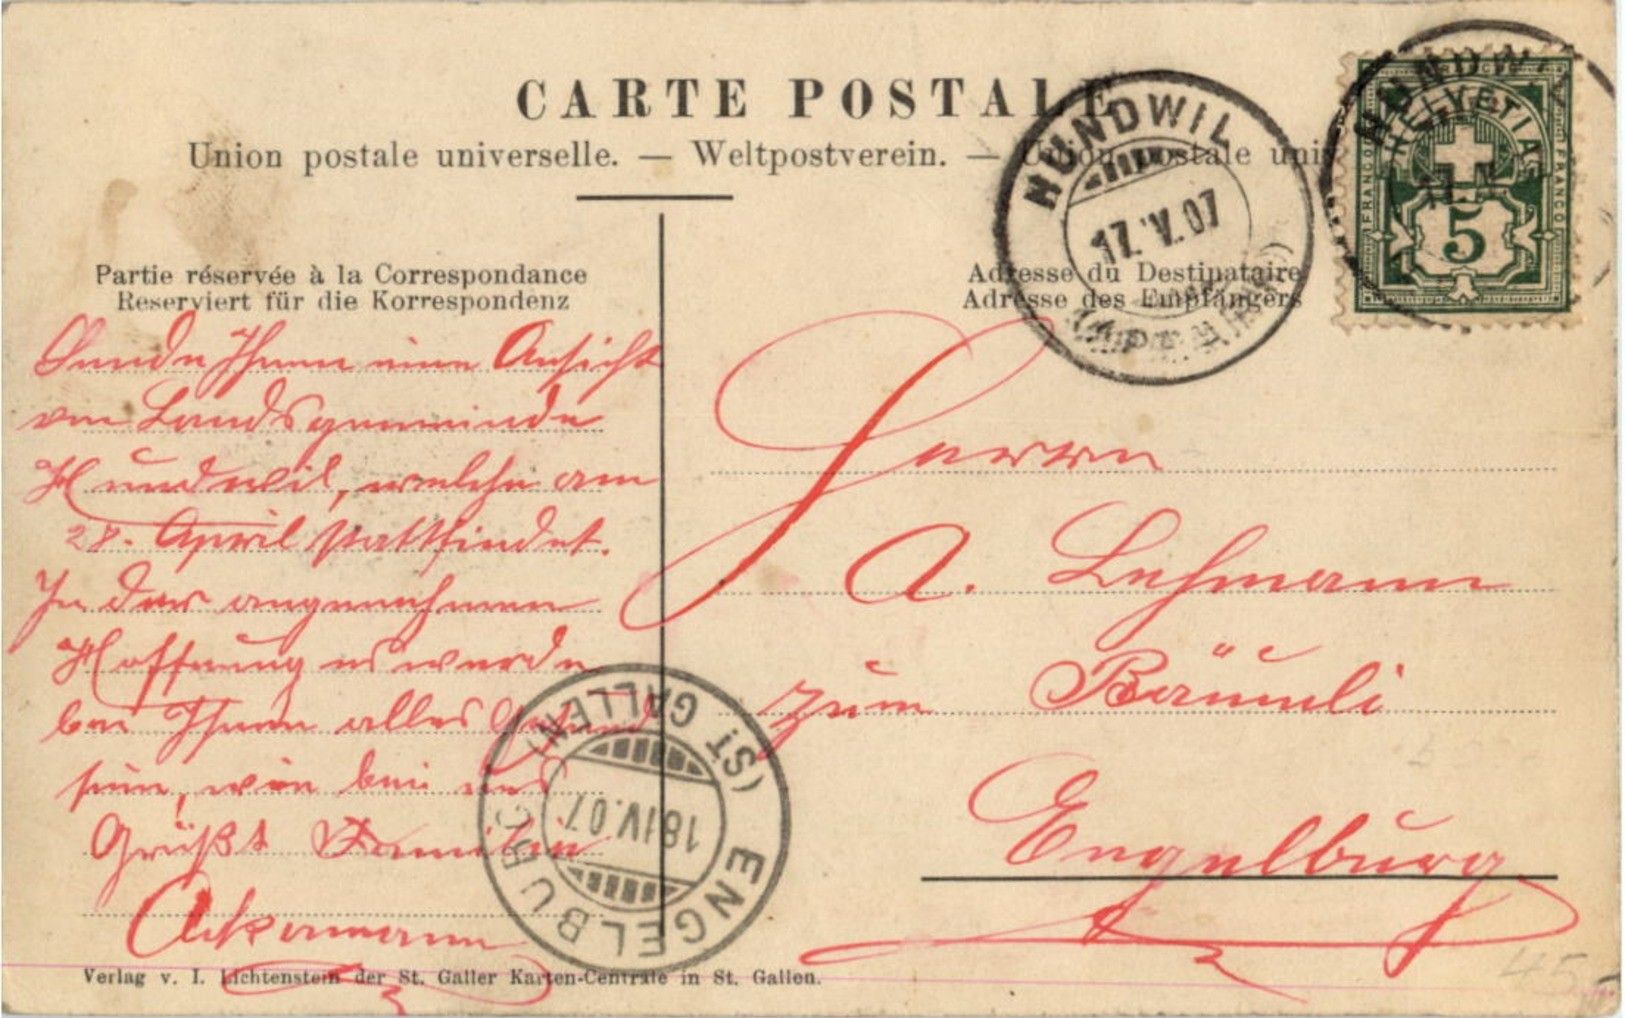 CARTE POSTALE
Union postale universelle. — Weltpostverein. — Union postale uni
HUNDWIL
17.IV.07
HUNDWIL
HELVETIA
FRANCO
FRANCO
5
Partie réservée à la Correspondance
Reserviert für die Korrespondenz
Adresse du Destinataire
Adresse des Empfängers
Sende Ihnen eine Ansicht
von Landsgemeinde
Hundwil, welche am
28. April stattfindet.
In der angenehmen
Hoffnung es werde
bei Ihnen alles
sein, wie bei uns
Grüßt Familie
Ackermann
Herrn
A. Lehmann
zum Bäumli
Engelburg
ENGELBURG
(ST. GALLEN)
18.IV.07
Verlag v. I. Lichtenstein der St. Galler Karten-Centrale in St. Gallen.
45